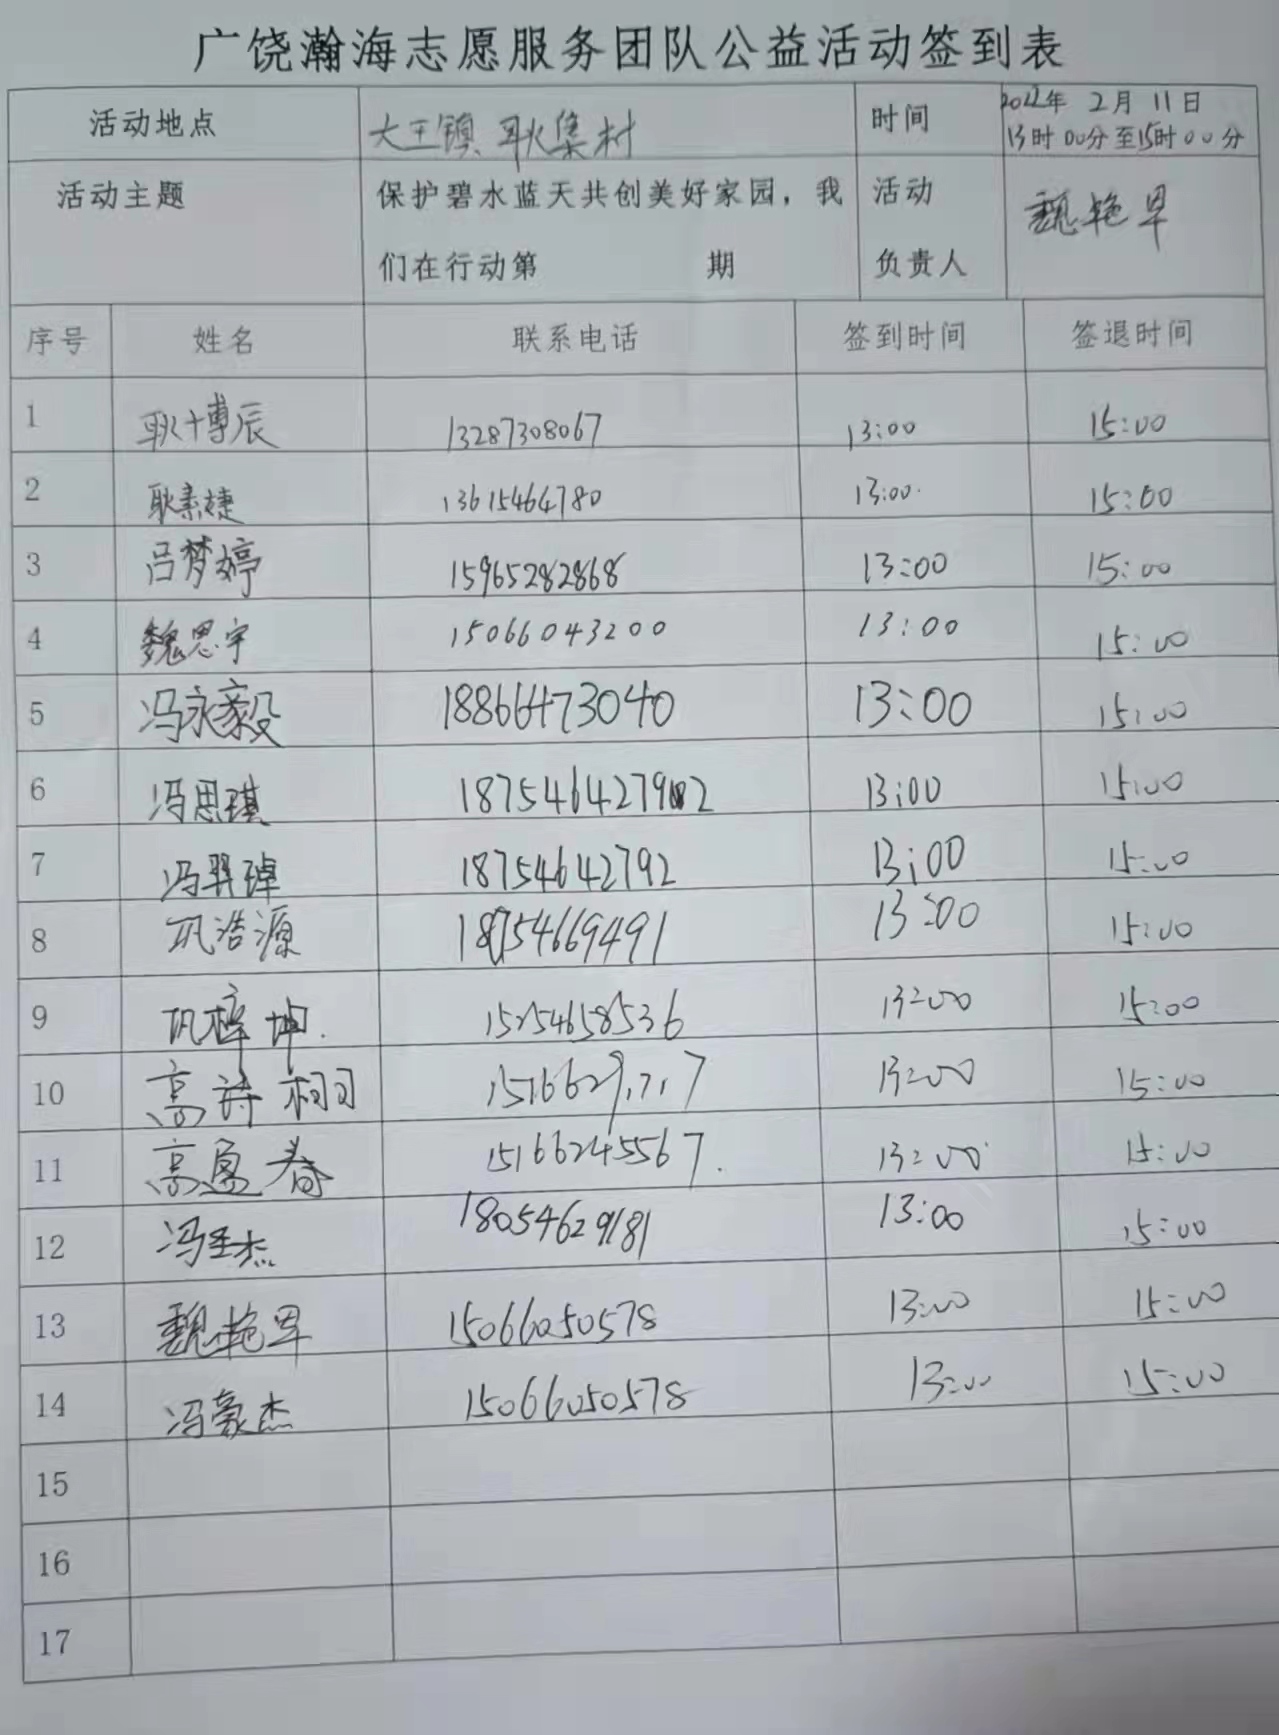 广饶瀚海志愿服务团队公益活动签到表
活动地点 大王镇 耿集村 时间 2022年 2月 11日
13时00分至15时00分
活动主题 保护碧水蓝天共创美好家园，我 活动 魏艳早
们在行动第 期 负责人
序号 姓名 联系电话 签到时间 签退时间
1 耿博辰 13287308067 13:00 15:00
2 耿素婕 13615464780 13:00 15:00
3 吕梦婷 15965282868 13:00 15:00
4 魏思宇 15066043200 13:00 15:00
5 冯永毅 18866473040 13:00 15:00
6 冯思琪 13:00 15:00
7 冯羿璋 18754642792 13:00 15:00
8 巩浩源 18754669491 13:00 15:00
9 巩梓坤 15254658536 13:00 15:00
10 高诗栩 13:00 15:00
11 高盈春 15166245567 13:00 15:00
12 冯圣杰 18054629181 13:00 15:00
13 魏艳早 15066050578 13:00 15:00
14 冯豪杰 15066050578 13:00 15:00
15
16
17